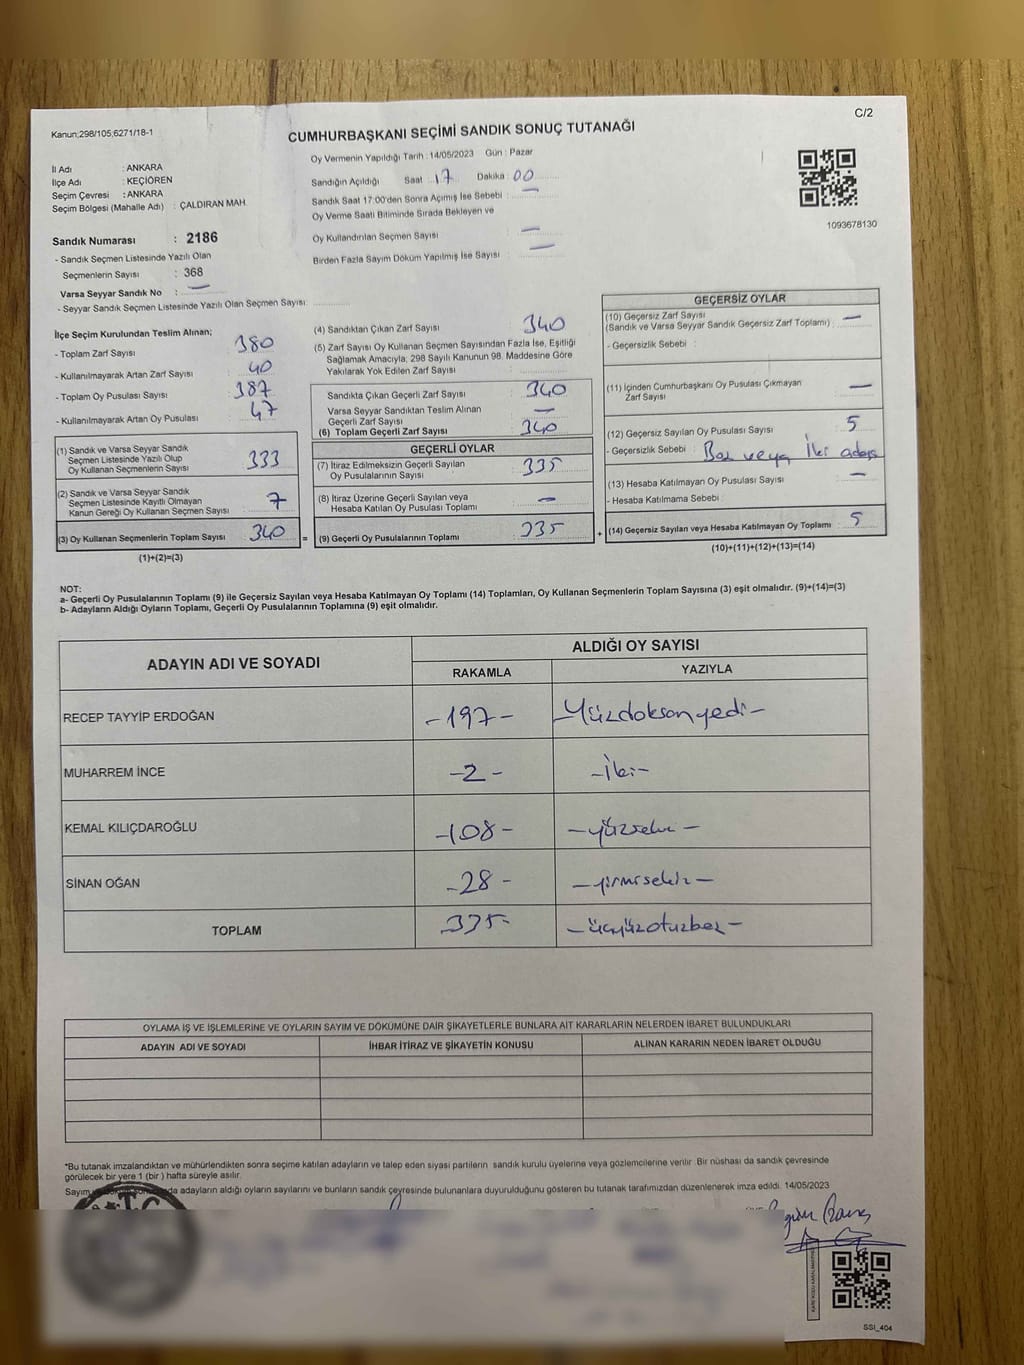 C/2
Kanun;298/105;6271/18-1
CUMHURBAŞKANI SEÇİMİ SANDIK SONUÇ TUTANAĞI
İl Adı : ANKARA
İlçe Adı : KEÇİÖREN
Seçim Çevresi : ANKARA
Seçim Bölgesi (Mahalle Adı) : ÇALDIRAN MAH.
Oy Vermenin Yapıldığı Tarih : 14/05/2023 Gün : Pazar
Sandığın Açıldığı Saat : 17 Dakika : 00
Sandık Saat 17:00'den Sonra Açımış İse Sebebi : —
Oy Verme Saati Bitiminde Sırada Bekleyen ve
Oy Kullandırılan Seçmen Sayısı : —
Birden Fazla Sayım Döküm Yapılmış İse Sayısı : —
1093678130
Sandık Numarası : 2186
- Sandık Seçmen Listesinde Yazılı Olan
Seçmenlerin Sayısı : 368
Varsa Seyyar Sandık No : —
- Seyyar Sandık Seçmen Listesinde Yazılı Olan Seçmen Sayısı:
İlçe Seçim Kurulundan Teslim Alınan;
- Toplam Zarf Sayısı 380
- Kullanılmayarak Artan Zarf Sayısı 40
- Toplam Oy Pusulası Sayısı 387
- Kullanılmayarak Artan Oy Pusulası 47
(1) Sandık ve Varsa Seyyar Sandık
Seçmen Listesinde Yazılı Olup
Oy Kullanan Seçmenlerin Sayısı 333
(2) Sandık ve Varsa Seyyar Sandık
Seçmen Listesinde Kayıtlı Olmayan
Kanun Gereği Oy Kullanan Seçmen Sayısı 7
(3) Oy Kullanan Seçmenlerin Toplam Sayısı 340 =
(1)+(2)=(3)
(4) Sandıktan Çıkan Zarf Sayısı 340
(5) Zarf Sayısı Oy Kullanan Seçmen Sayısından Fazla İse, Eşitliği
Sağlamak Amacıyla; 298 Sayılı Kanunun 98. Maddesine Göre
Yakılarak Yok Edilen Zarf Sayısı
Sandıkta Çıkan Geçerli Zarf Sayısı 340
Varsa Seyyar Sandıktan Teslim Alınan
Geçerli Zarf Sayısı —
(6) Toplam Geçerli Zarf Sayısı 340
GEÇERLİ OYLAR
(7) İtiraz Edilmeksizin Geçerli Sayılan
Oy Pusulalarının Sayısı 335
(8) İtiraz Üzerine Geçerli Sayılan veya
Hesaba Katılan Oy Pusulası Toplamı —
(9) Geçerli Oy Pusulalarının Toplamı 335 +
GEÇERSİZ OYLAR
(10) Geçersiz Zarf Sayısı —
(Sandık ve Varsa Seyyar Sandık Geçersiz Zarf Toplamı)
- Geçersizlik Sebebi :
(11) İçinden Cumhurbaşkanı Oy Pusulası Çıkmayan
Zarf Sayısı —
(12) Geçersiz Sayılan Oy Pusulası Sayısı 5
- Geçersizlik Sebebi : Boş veya İki aday
(13) Hesaba Katılmayan Oy Pusulası Sayısı —
- Hesaba Katılmama Sebebi :
(14) Geçersiz Sayılan veya Hesaba Katılmayan Oy Toplamı 5
(10)+(11)+(12)+(13)=(14)
NOT:
a- Geçerli Oy Pusulalarının Toplamı (9) ile Geçersiz Sayılan veya Hesaba Katılmayan Oy Toplamı (14) Toplamları, Oy Kullanan Seçmenlerin Toplam Sayısına (3) eşit olmalıdır. (9)+(14)=(3)
b- Adayların Aldığı Oyların Toplamı, Geçerli Oy Pusulalarının Toplamına (9) eşit olmalıdır.
ADAYIN ADI VE SOYADI
ALDIĞI OY SAYISI
RAKAMLA YAZIYLA
RECEP TAYYİP ERDOĞAN -197- -Yüzdoksanyedi-
MUHARREM İNCE -2- -İki-
KEMAL KILIÇDAROĞLU -108- -yüzsekiz-
SİNAN OĞAN -28- -yirmisekiz-
TOPLAM 335- -üçyüzotuzbeş-
OYLAMA İŞ VE İŞLEMLERİNE VE OYLARIN SAYIM VE DÖKÜMÜNE DAİR ŞİKAYETLERLE BUNLARA AİT KARARLARIN NELERDEN İBARET BULUNDUKLARI
ADAYIN ADI VE SOYADI İHBAR İTİRAZ VE ŞİKAYETİN KONUSU ALINAN KARARIN NEDEN İBARET OLDUĞU
*Bu tutanak imzalandıktan ve mühürlendikten sonra seçime katılan adayların ve talep eden siyasi partilerin sandık kurulu üyelerine veya gözlemcilerine verilir. Bir nüshası da sandık çevresinde
görülecek bir yere 1 (bir) hafta süreyle asılır.
adayların aldığı oyların sayılarını ve bunların sandık çevresinde bulunanlara duyurulduğunu gösteren bu tutanak tarafımızdan düzenlenerek imza edildi. 14/05/2023
T.C.
SSİ_404